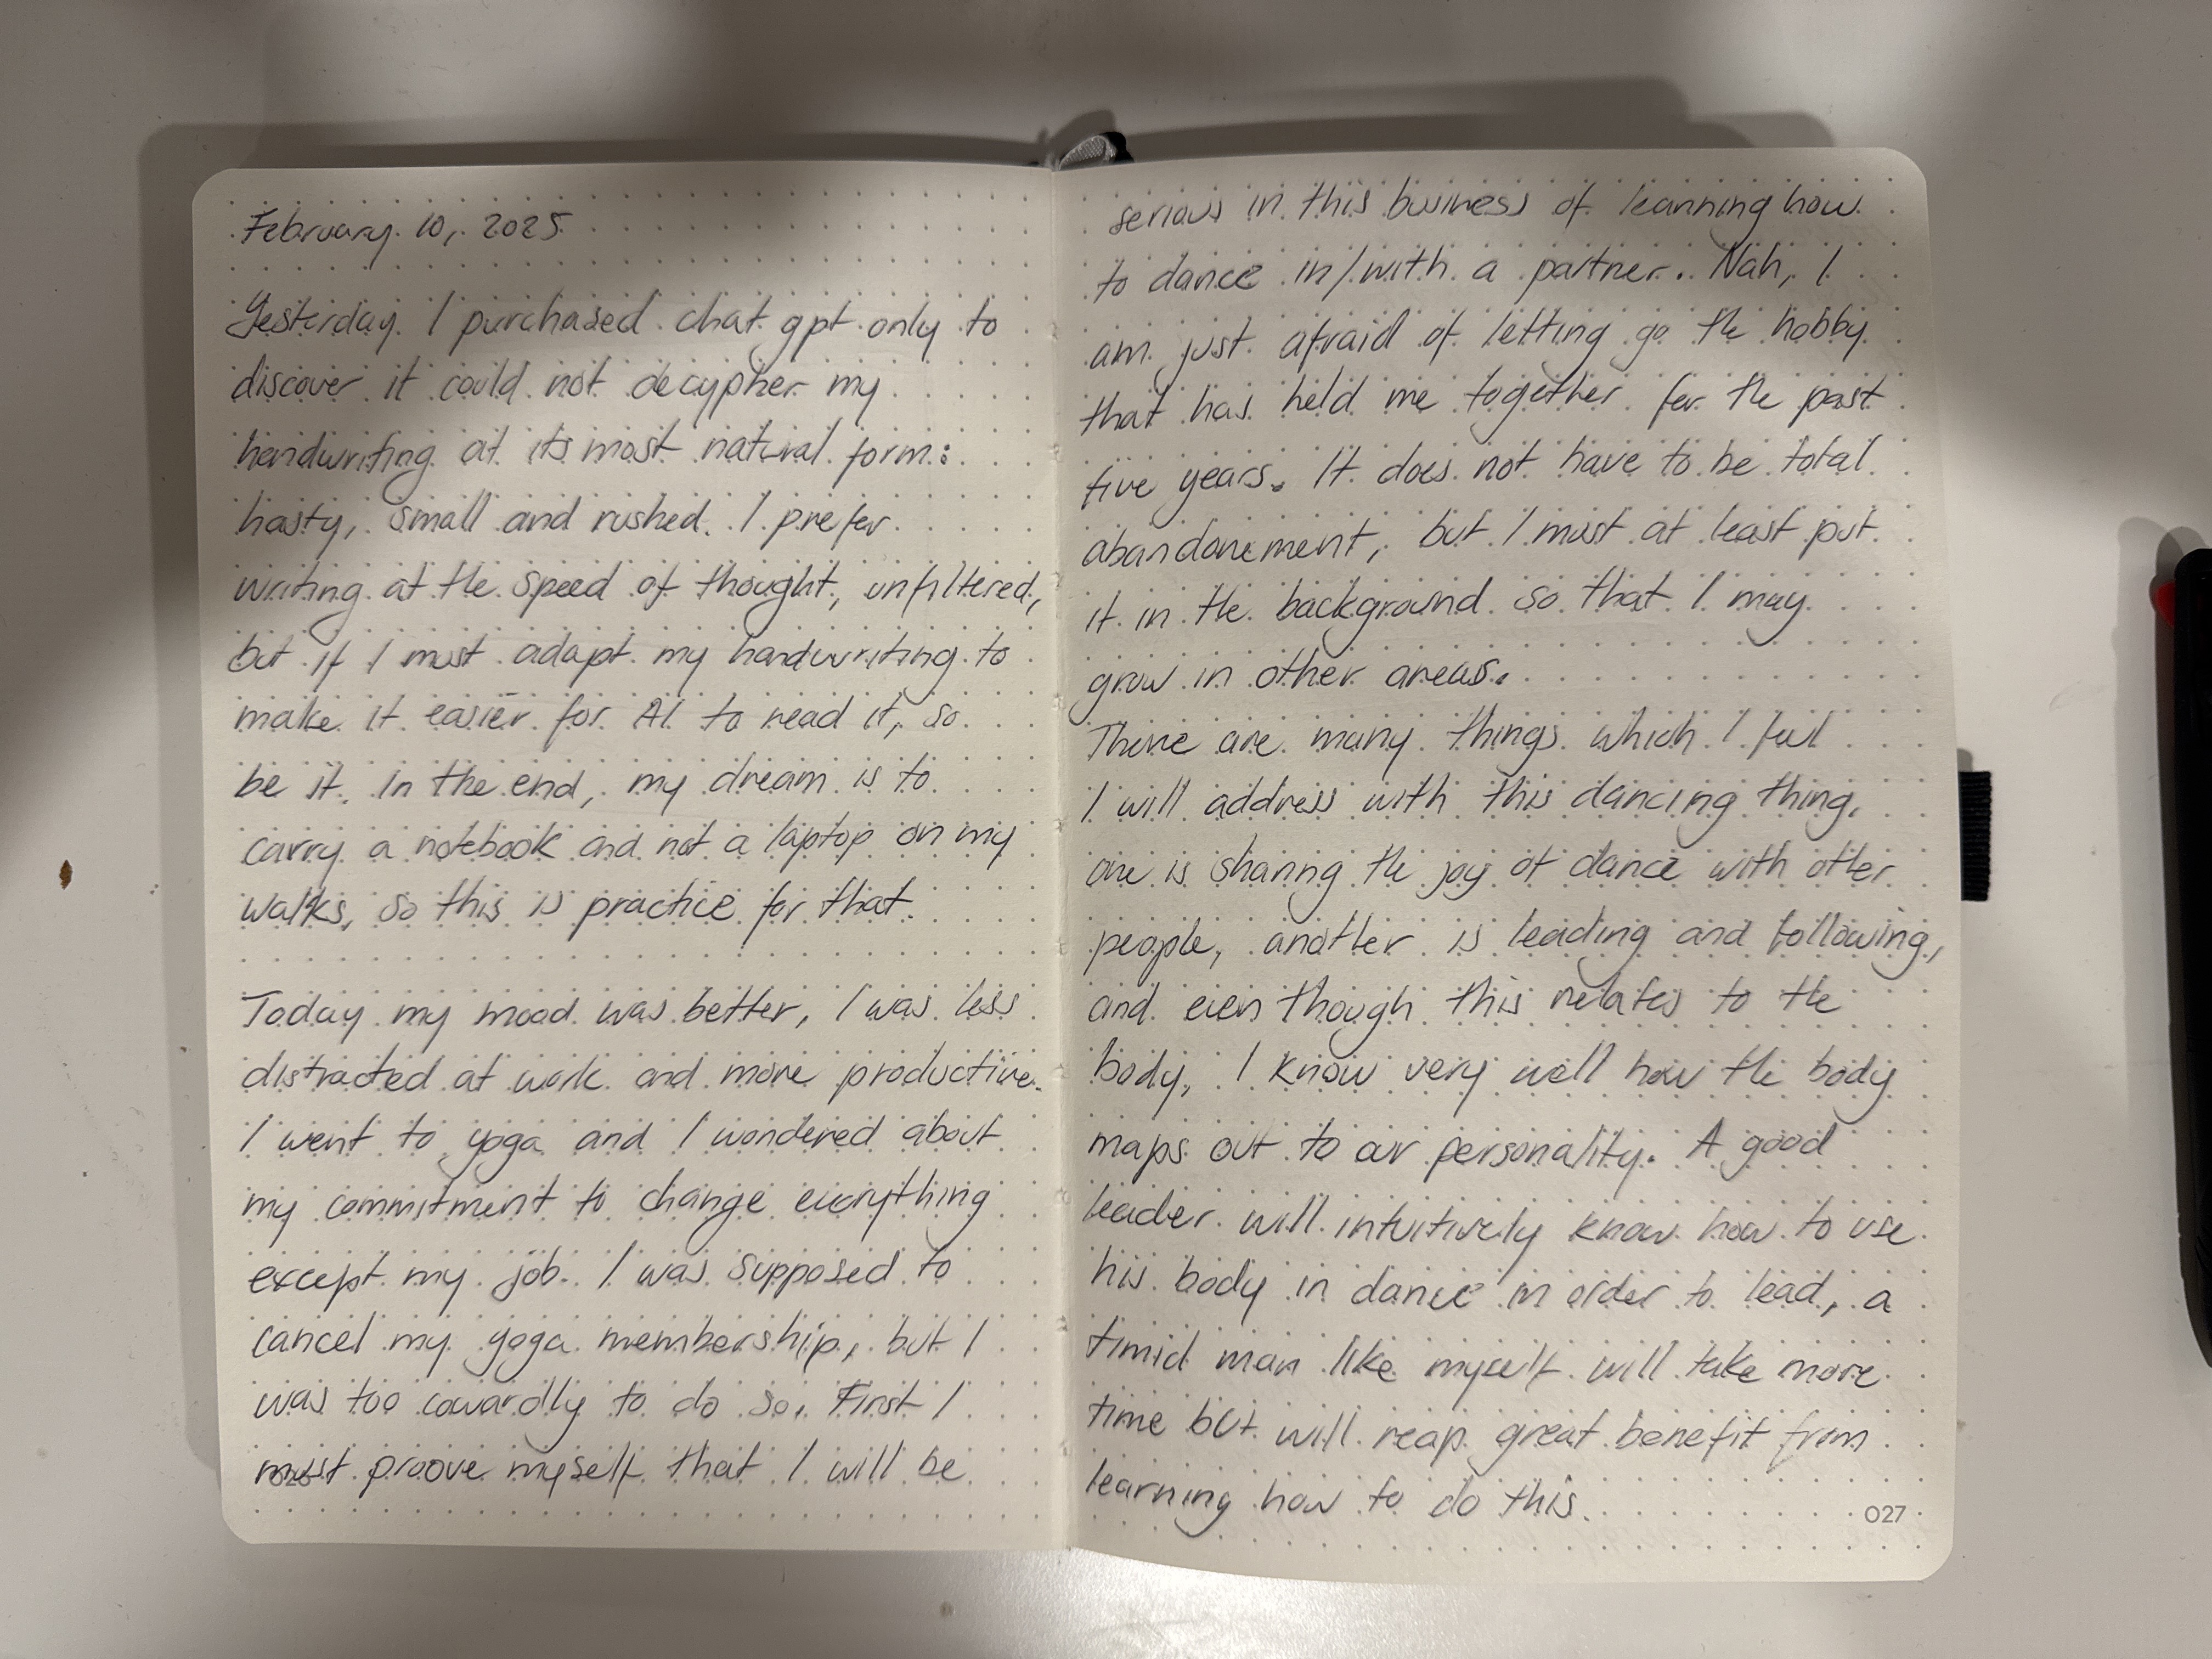 February 10, 2025
Yesterday I purchased chat gpt only to
discover it could not decypher my
handwriting at its most natural form:
hasty, small and rushed. I prefer
writing at the speed of thought, unfiltered,
but if I must adapt my handwriting to
make it easier for AI to read it, so
be it. in the end, my dream is to
carry a notebook and not a laptop on my
walks, so this is practice for that.
Today my mood was better, I was less
distracted at work and more productive.
I went to yoga and I wondered about
my commitment to change everything
except my job. I was supposed to
cancel my yoga membership, but I
was too cowardly to do so. First I
must proove myself that I will be
026
serious in this business of learning how
to dance in/with a partner. Nah, I
am just afraid of letting go the hobby
that has held me together for the past
five years. It does not have to be total
abandonement, but I must at least put
it in the background so that I may
grow in other areas.
There are many things which I feel
I will address with this dancing thing.
one is sharing the joy of dance with other
people, another is leading and following,
and even though this relates to the
body, I know very well how the body
maps out to our personality. A good
leader will intuitively know how to use
his body in dance in order to lead, a
timid man like myself will take more
time but will reap great benefit from
learning how to do this.
027